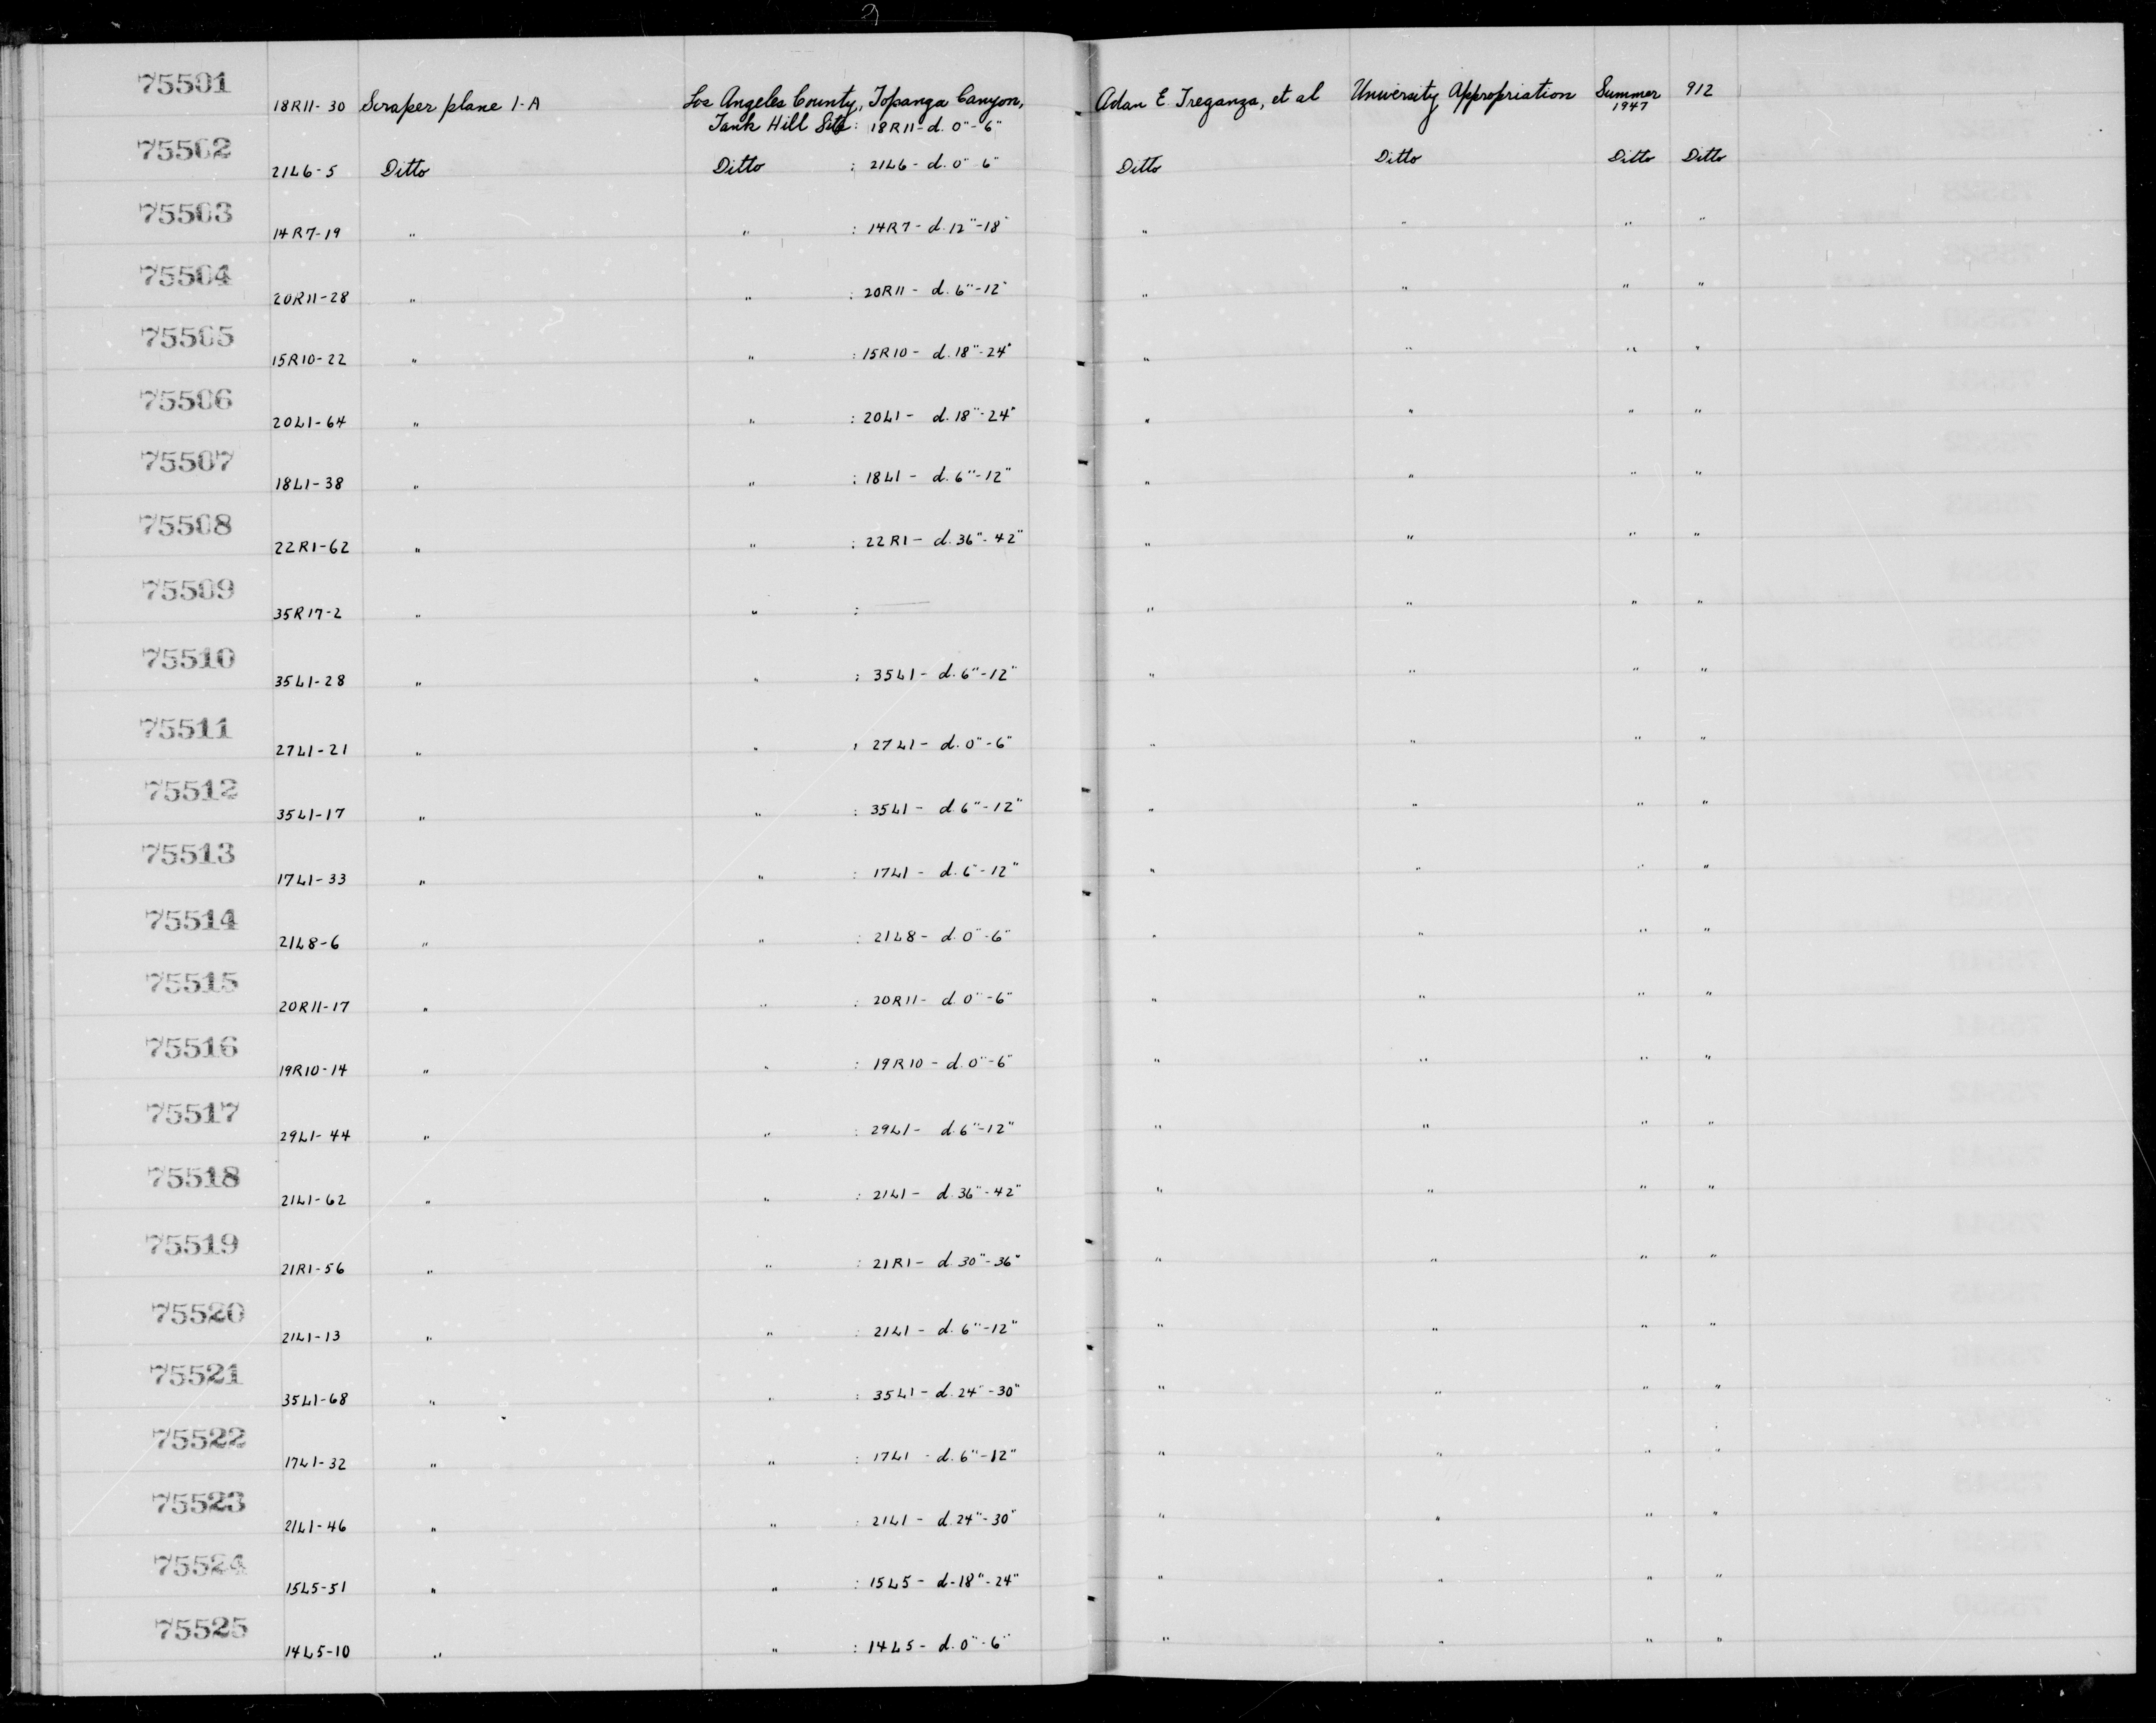 75501 18R11-30 Scraper plane 1-A Los Angeles County, Topanga Canyon, Adan E. Treganza, et al University Appropriation Summer 1947 912
Tank Hill Site: 18R11-d. 0"-6"
75502 21L6-5 Ditto Ditto : 21L6-d. 0" 6" Ditto Ditto Ditto Ditto
75503 14R7-19 " " : 14R7-d. 12"-18" " " " "
75504 20R11-28 " " : 20R11- d. 6"-12" " " " "
75505 15R10-22 " " : 15R10- d. 18"-24" " " " "
75506 20L1-64 " " : 20L1- d. 18"-24" " " " "
75507 18L1-38 " " : 18L1- d. 6"-12" " " " "
75508 22R1-62 " " : 22R1- d. 36"-42" " " " "
75509 35R17-2 " " : — " " " "
75510 35L1-28 " " : 35L1- d. 6"-12" " " " "
75511 27L1-21 " " : 27L1- d. 0"-6" " " " "
75512 35L1-17 " " : 35L1- d. 6"-12" " " " "
75513 17L1-33 " " : 17L1- d. 6"-12" " " " "
75514 21L8-6 " " : 21L8- d. 0"-6" " " " "
75515 20R11-17 " " : 20R11- d. 0"-6" " " " "
75516 19R10-14 " " : 19R10- d. 0"-6" " " " "
75517 29L1-44 " " : 29L1- d. 6"-12" " " " "
75518 21L1-62 " " : 21L1- d. 36"-42" " " " "
75519 21R1-56 " " : 21R1- d. 30"-36" " " " "
75520 21L1-13 " " : 21L1- d. 6"-12" " " " "
75521 35L1-68 " " : 35L1- d. 24"-30" " " " "
75522 17L1-32 " " : 17L1 - d. 6"-12" " " " "
75523 21L1-46 " " : 21L1- d. 24"-30" " " " "
75524 15L5-51 " " : 15L5- d-18"-24" " " " "
75525 14L5-10 " " : 14L5- d. 0"-6" " " " "